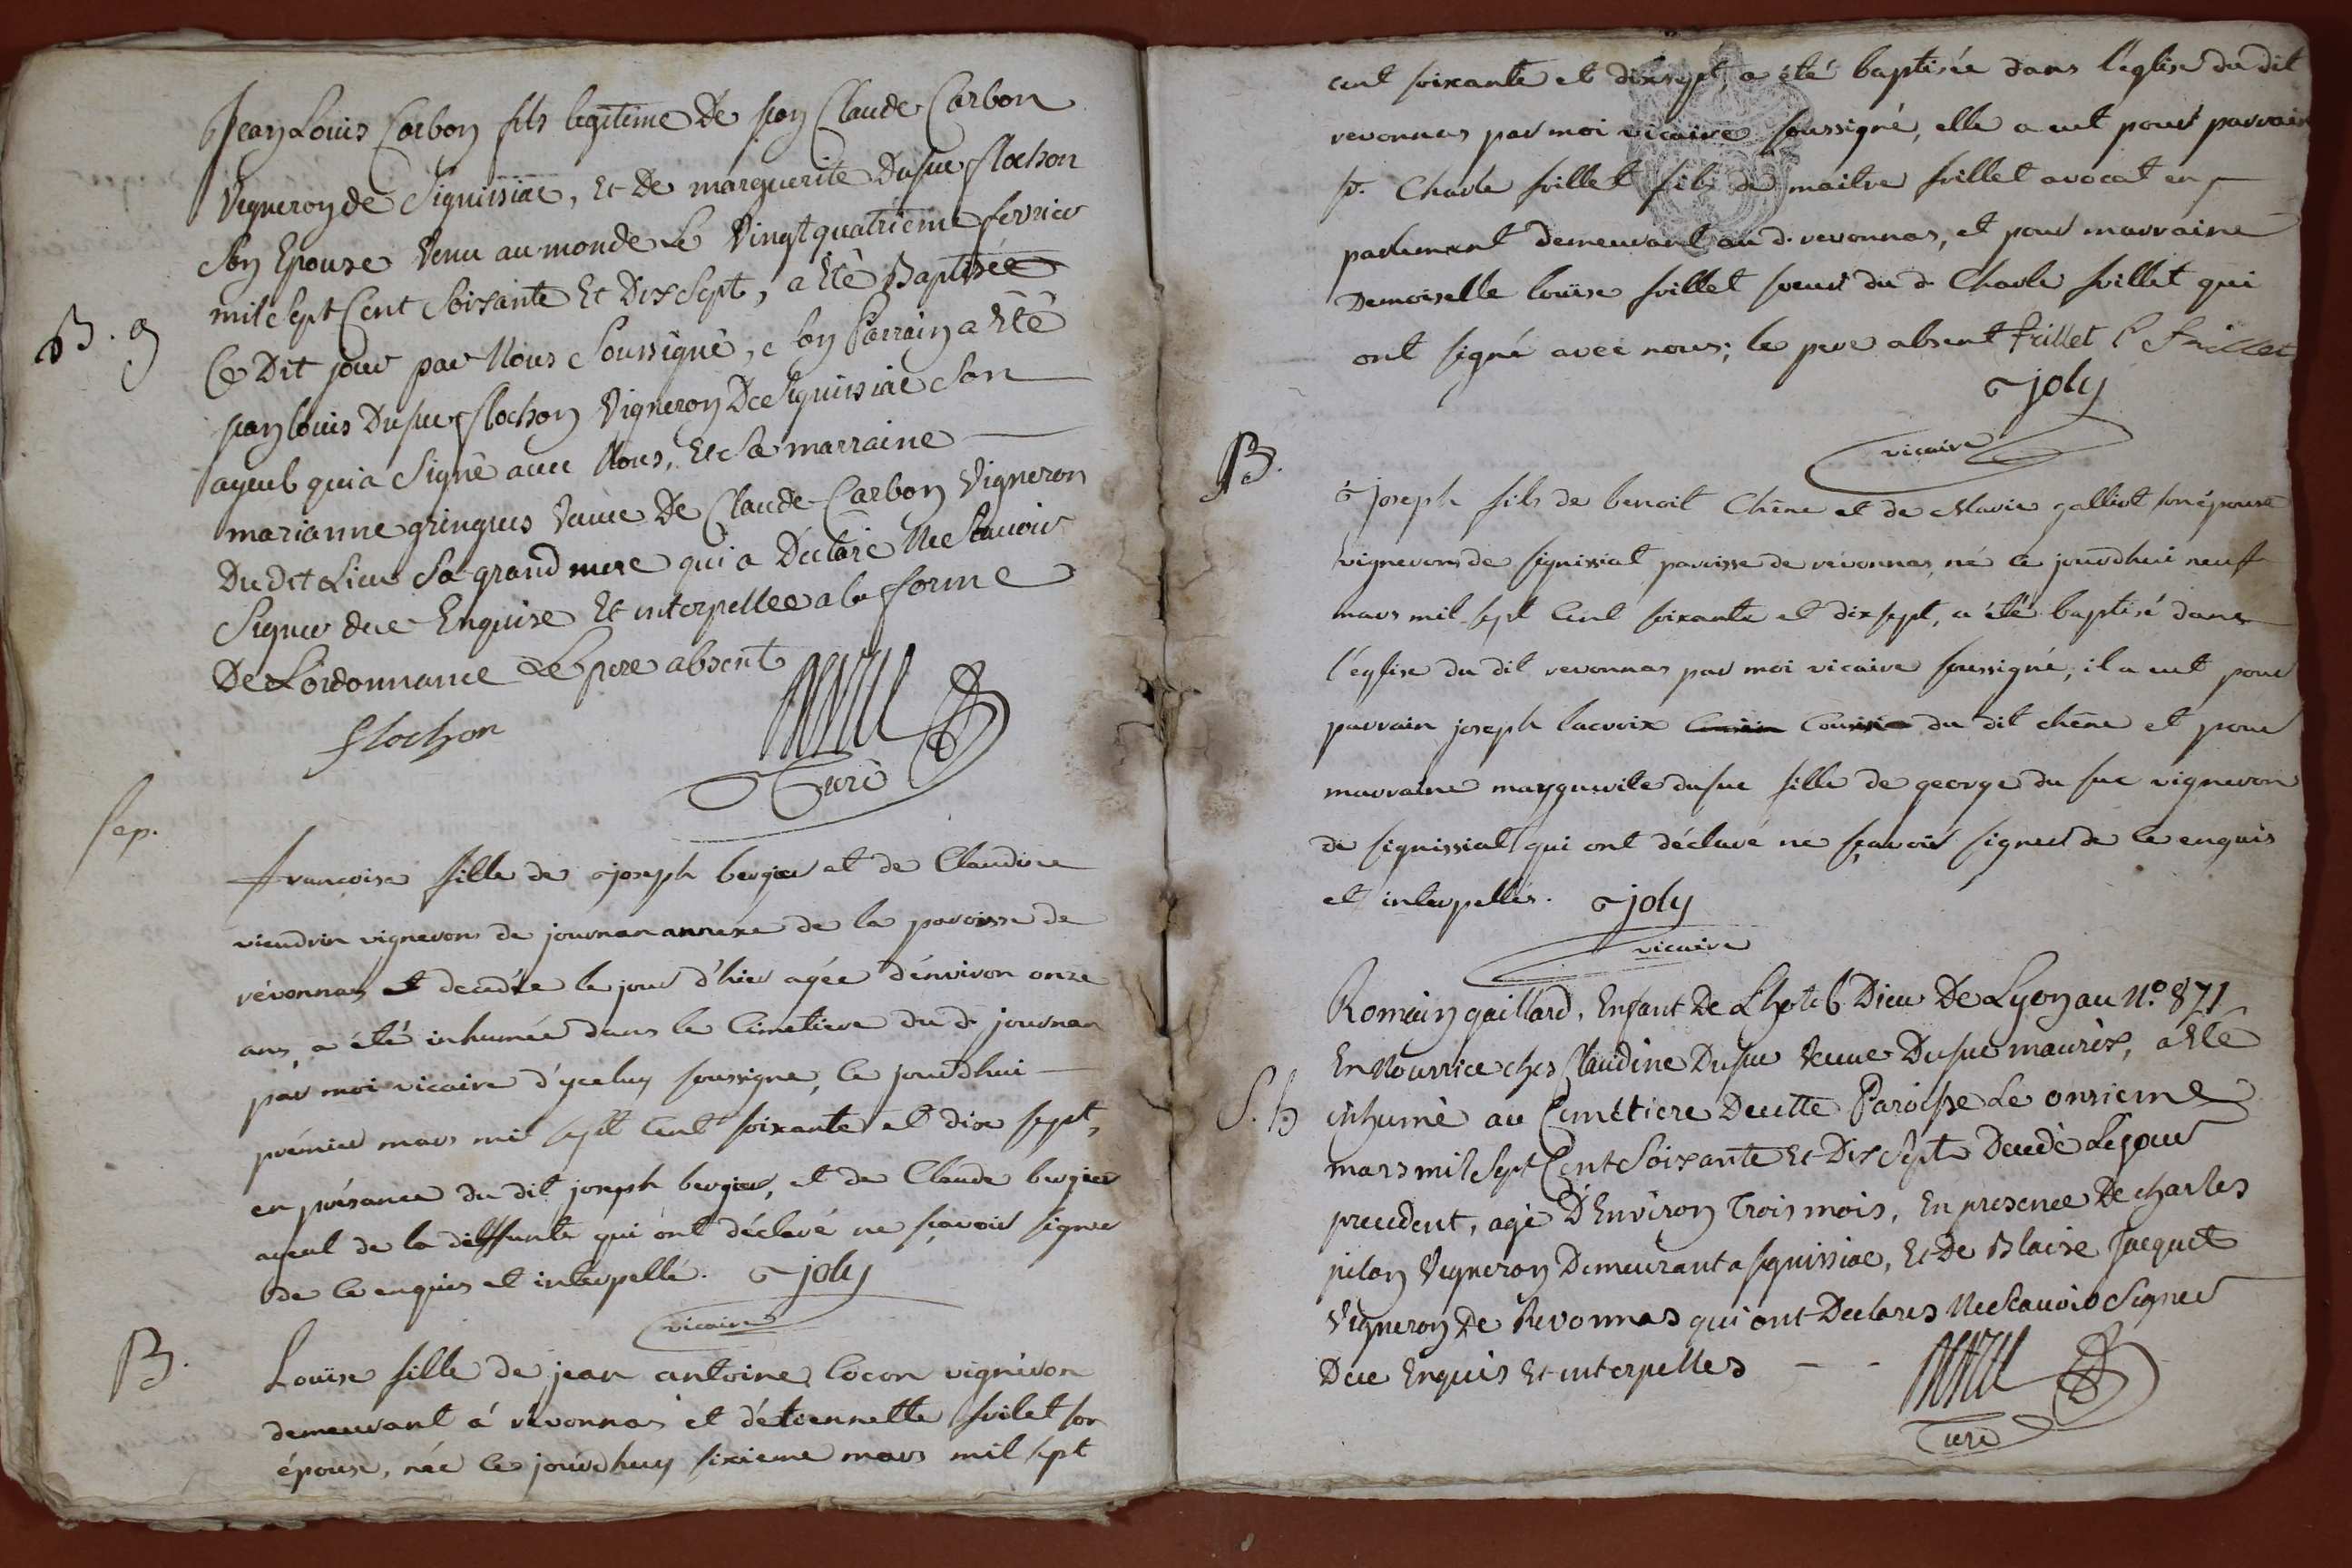 Jean Louis Carbon fils legitime De jean Claude Carbon
Vigneron de Signissiac, Et De marguerite Dusuc flochon
Son Epouse Venu au monde Le Vingt quatrieme fevrier
mil Sept Cent Soixante Et Dix Sept, a Eté Baptisée
B. g
Ce Dit jour par Nous Soussigné, son Parrain a Eté
jean louis Dusuc flochon Vigneron De Signissiac Son
ayeul qui a Signé avec Nous, Et Sa marraine
marianne gringues Veuve De Claude Carbon Vigneron
Du Dit Lieu Sa grand mere qui a Declaré Ne Scavoir
Signer de ce Enquise Et interpellee a la forme
De Lordonnance Le pere absent
flochon
Curé
Sep.
francoise fille de joseph bergier et de Claudine
viendrin vigneron de journan annexe de la paroisse de
révonnas et decédée le jour d'hier agée d'environ onze
ans, a été inhumée dans le Cimetiere du d. journan
par moi vicaire d'yceluy soussigne, ce jourdhui
prémier mars mil sept cent soixante et dix sept,
en présance du dit joseph bergier, et de Claude bergier
ayeul de la deffunte qui ont déclaré ne sçavoir signer
de ce enquis et interpellé. joly
vicaire
B.
Louise fille de jean antoine Cocon vignéron
demeurant á révonnas et d'étiennette frilet son
épouse, née ce jourdhuy sixieme mars mil sept
cent soixante et dixsept, a été baptisée dans l'église du dit
revonnas par moi vicaire soussigné, elle a eut pour parrain
sr. Charle frillet fils de maitre frillet avocat en
parlement demeurant au d. revonnas, et pour marraine
Demoiselle louise frillet soeur du d. Charle frillet qui
ont signé avec nous; le pere absent frillet l frillet
joly
vicaire
B.
joseph fils de benoit Chêne et de Marie galliot son épouse
vignerons de signissiat paroisse de révonnas, né ce jourdhui neuf
mars mil sept Cent soixante et dix sept, a été baptisé dans
l'église du dit revonnas par moi vicaire soussigné; il a eut pour
parrain joseph lacroix Cousin du dit chêne et pour
marraine marguerite dusuc fille de george du suc vigneron
de signissiat qui ont déclaré ne sçavoir signer de ce enquis
et interpellés. joly
vicaire
Romain gaillard, Enfant De Lhotel Dieu De Lyon au N.o 871
En Nourrice ches Claudine Dusuc Veuve Dusuc maurix, a Eté
S. h
inhumé au Cimetiere De cette Paroisse Le onzieme
mars mil Sept Cent Soixante Et Dix Sept Decedé Le jour
precedent, agé D'Environ Trois mois, En presence De charles
pilon Vigneron Demeurant a signissiac, Et De Blaise Jacquet
Vigneron De Revonnas qui ont Declarés Ne Scavoir Signer
De ce Enquis Et interpelles
Curé